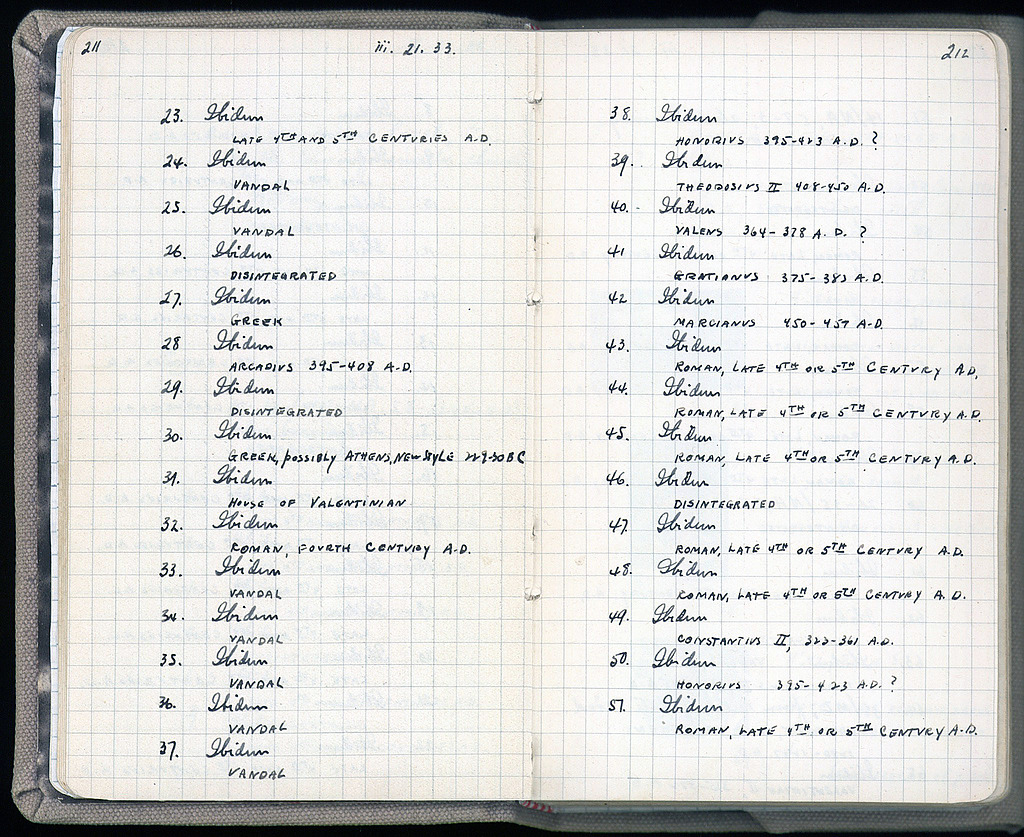 211
iii. 21. 33.
23. Ibidem
LATE 4TH AND 5TH CENTURIES A.D.
24. Ibidem
VANDAL
25. Ibidem
VANDAL
26. Ibidem
DISINTEGRATED
27. Ibidem
GREEK
28 Ibidem
ARCADIUS 395-408 A.D.
29. Ibidem
DISINTEGRATED
30. Ibidem
GREEK, possibly ATHENS, NEW STYLE 229-30 BC
31. Ibidem
HOUSE OF VALENTINIAN
32. Ibidem
ROMAN, FOURTH CENTURY A.D.
33. Ibidem
VANDAL
34. Ibidem
VANDAL
35. Ibidem
VANDAL
36. Ibidem
VANDAL
37. Ibidem
VANDAL
212
38. Ibidem
HONORIUS 395-423 A.D. ?
39. Ibidem
THEODOSIUS II 408-450 A.D.
40. Ibidem
VALENS 364-378 A.D. ?
41 Ibidem
GRATIANUS 375-383 A.D.
42 Ibidem
MARCIANUS 450-457 A.D.
43. Ibidem
ROMAN, LATE 4TH OR 5TH CENTURY A.D.
44. Ibidem
ROMAN, LATE 4TH OR 5TH CENTURY A.D.
45. Ibidem
ROMAN, LATE 4TH OR 5TH CENTURY A.D.
46. Ibidem
DISINTEGRATED
47. Ibidem
ROMAN, LATE 4TH OR 5TH CENTURY A.D.
48. Ibidem
ROMAN, LATE 4TH OR 5TH CENTURY A.D.
49. Ibidem
CONSTANTIUS II, 323-361 A.D.
50. Ibidem
HONORIUS 395-423 A.D. ?
51. Ibidem
ROMAN, LATE 4TH OR 5TH CENTURY A.D.